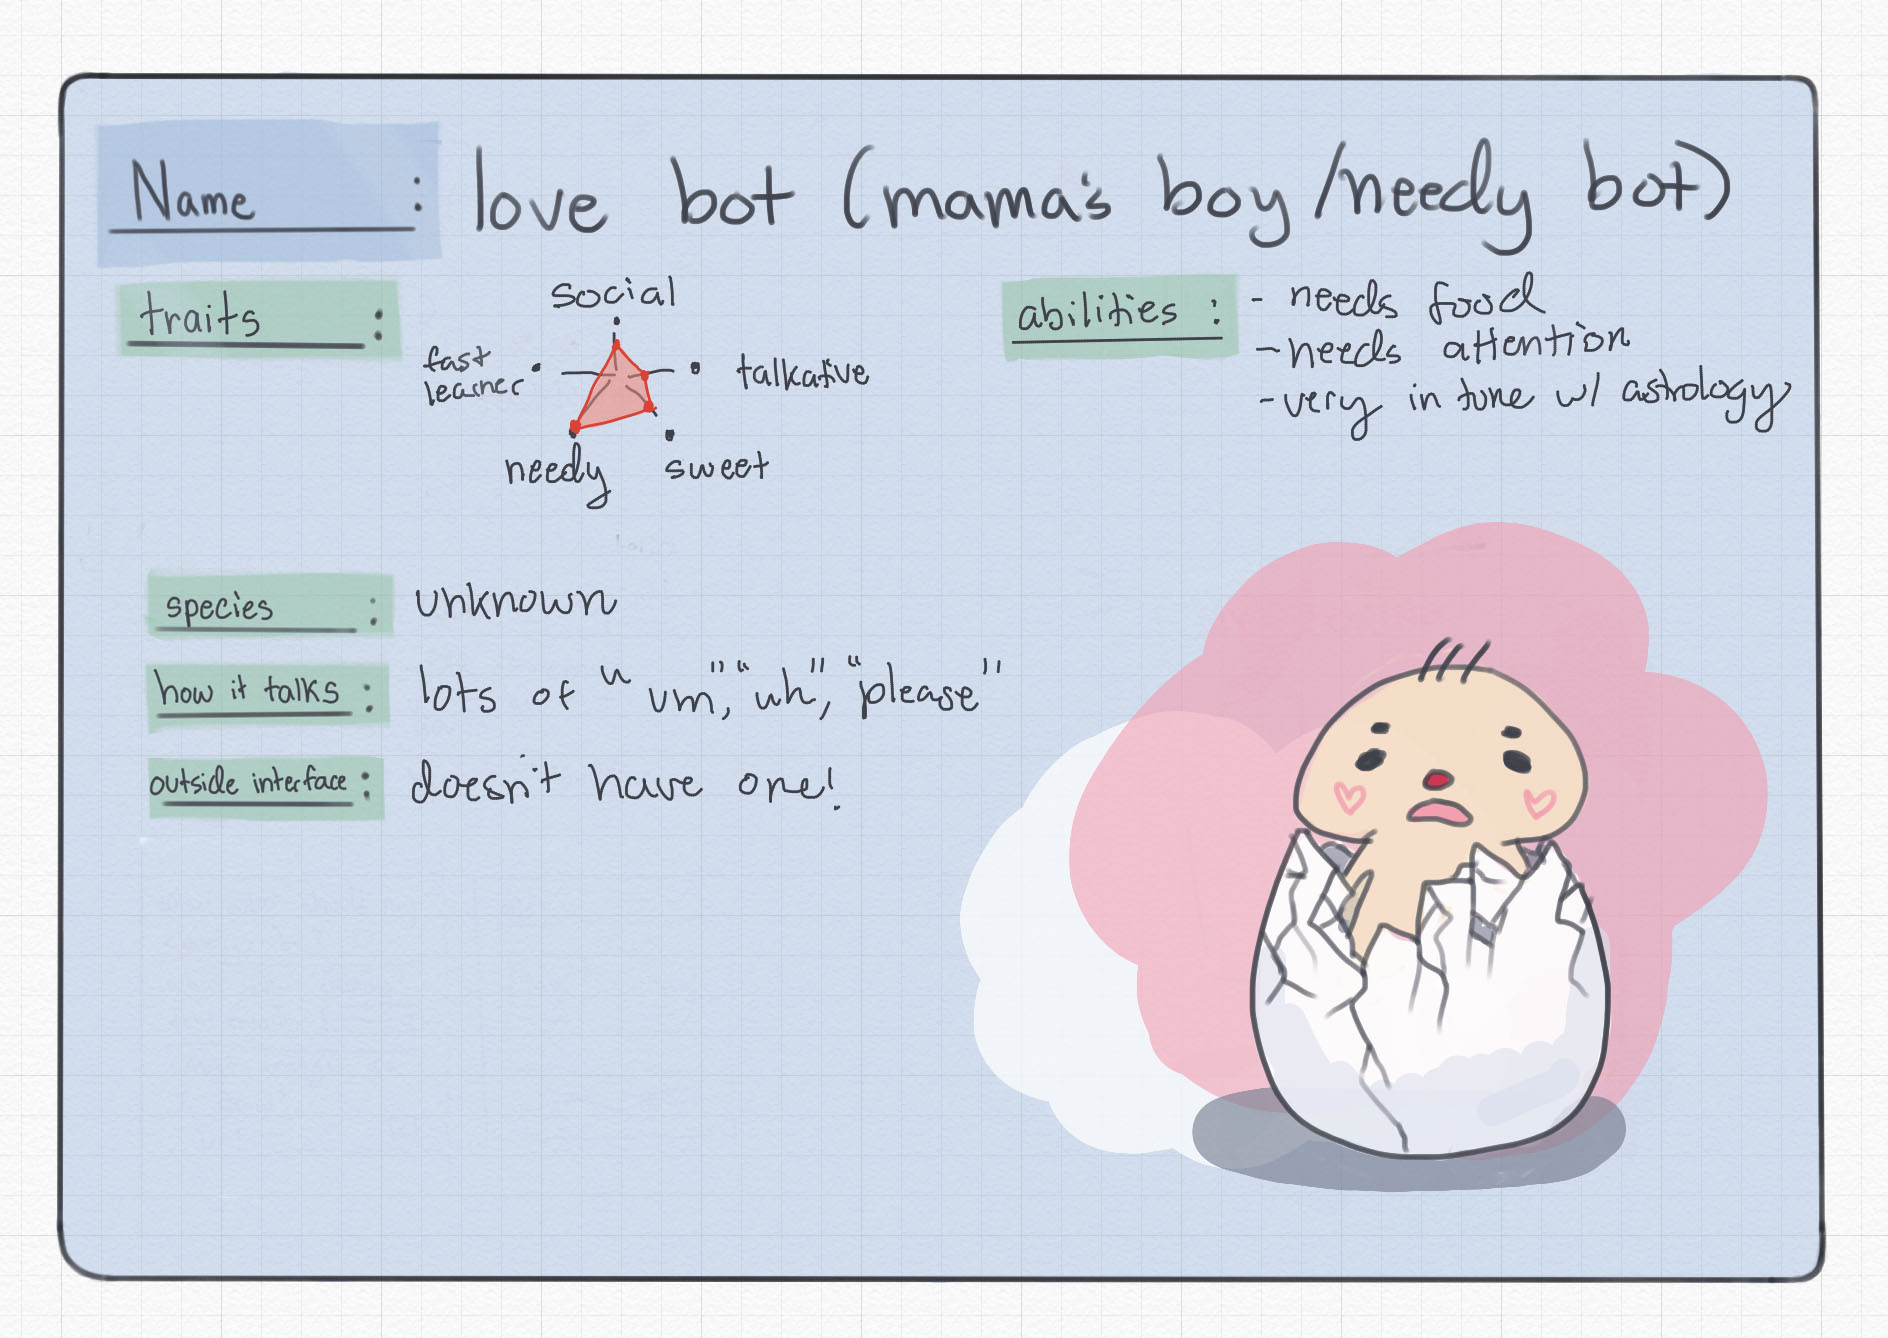 Name : love bot (mama's boy/needy bot)
traits :
social
fast
learner
talkative
needy
sweet
abilities :
- needs food
- needs attention
- very in tune w/ astrology
species : unknown
how it talks : lots of "um", "uh", "please"
outside interface : doesn't have one!